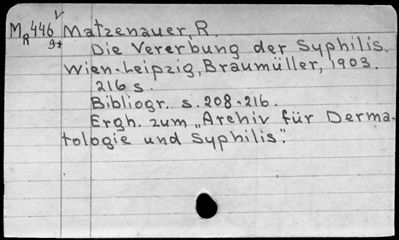 MR446 Matzenauer, R.
9*
Die Vererbung der Syphilis.
Wien-Leipzig, Braumüller, 1903.
216 s.
Bibliogr. s. 208-216.
Ergh. zum „Archiv für Derma-
tologie und Syphilis".